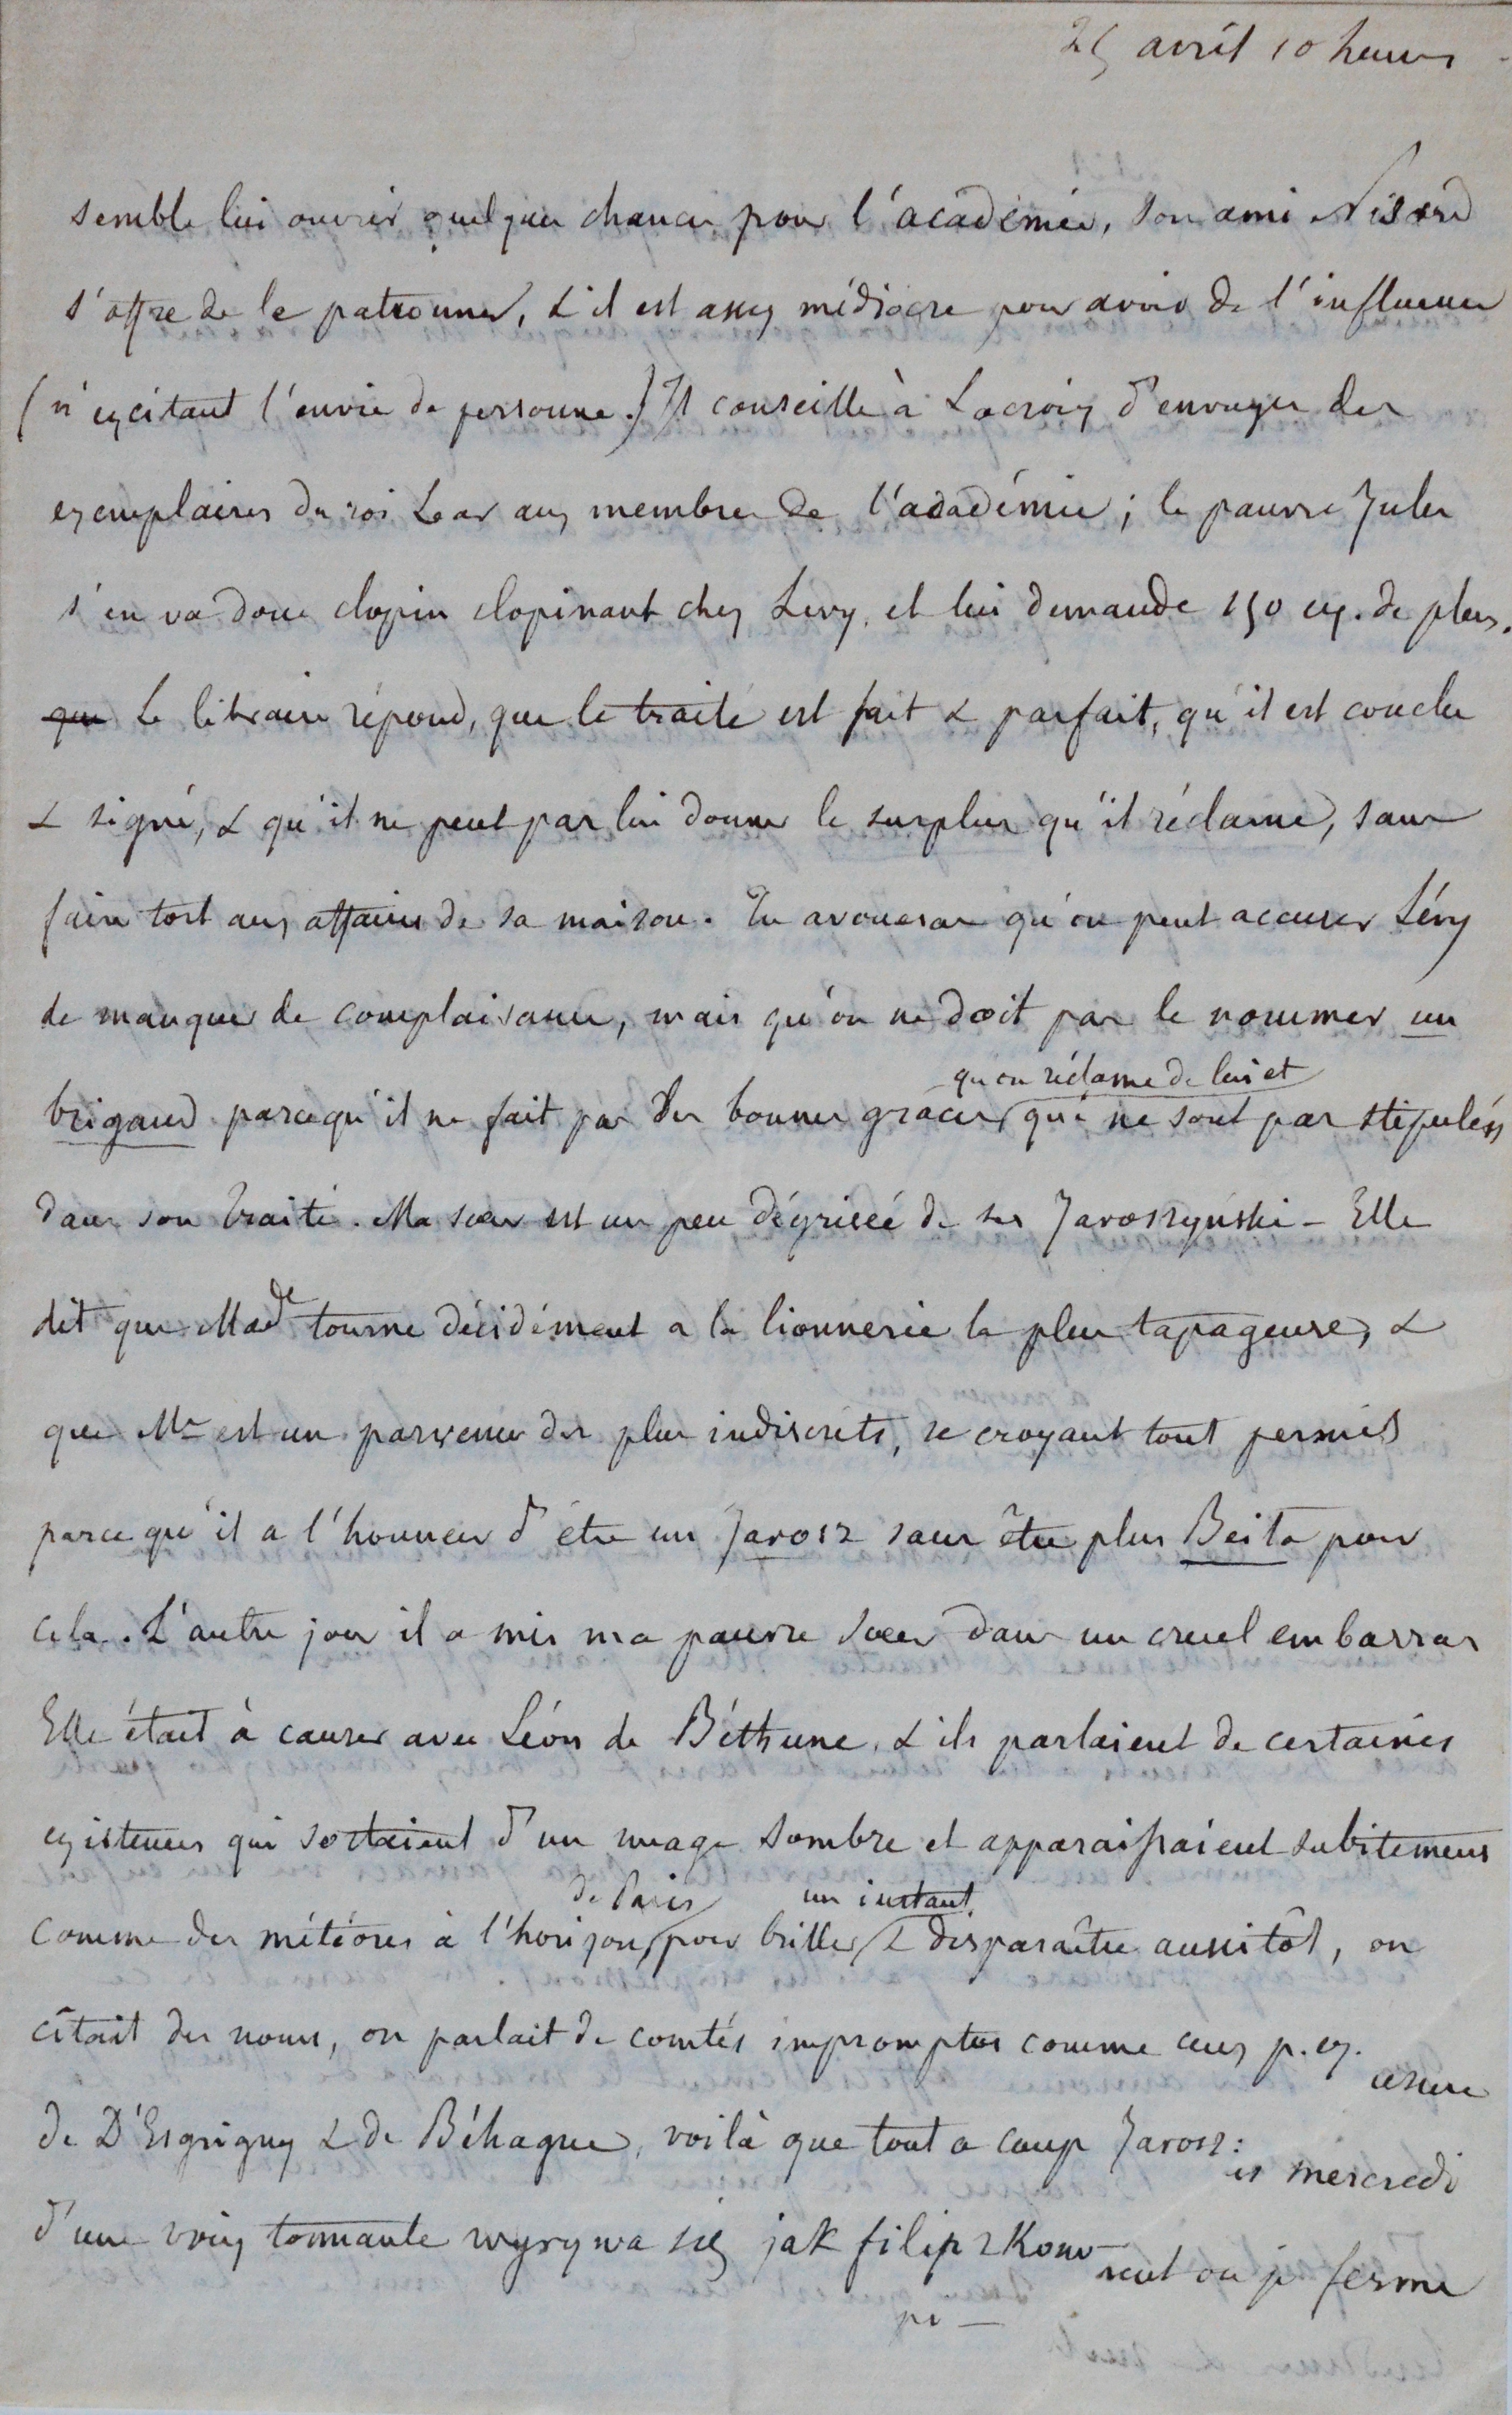 25 avril 10 heures
semble lui ouvrir quelques chances pour l'académie, son ami Nisard
s'offre de le patronner, & il est assez médiocre pour avoir de l'influence
(n'excitant l'envie de personne.) Il conseille à Lacroix d'envoyer des
exemplaires du roi Lear aux membres de l'académie; le pauvre Jules
s'en va donc clopin clopinant chez Levy, et lui demande 150 ex. de plus.
que Le libraire répond, que le traité est fait & parfait, qu'il est conclu
& signé, & qu'il ne peut pas lui donner le surplus qu'il réclame, sans
faire tort aux affaires de sa maison. Tu avoueras qu'on peut accuser Lévy
de manquer de complaisance, mais qu'on ne doit pas le nommer un
qu'on réclame de lui et
brigand parcequ'il ne fait pas des bonnes graces qui ne sont pas stipulées
dans son traité. Ma sœur est un peu dégrisée de ses Jaroszyński - Elle
dit que Made tourne décidément a la lionnerie la plus tapageuse, &
que Mr est un parvenu des plus indiscrets, se croyant tout permis
parce qu'il a l'honneur d'être un Jarosz sans être plus Beita pour
cela. L'autre jour il a mis ma pauvre sœur dans un cruel embarras
Elle était à causer avec Léon de Béthune, & ils parlaient de certaines
existences qui sortaient d'un nuage sombre et apparaissaient subitement
de Paris un instant
comme des météores à l'horizon, pour briller & disparaître aussitôt, on
citait des noms, on parlait de comtés impromptus comme ceux p. ex.
de D'Esgrigny & de Béhague, voilà que tout a coup Jarosz:
es mercredi
d'une voix tonnante wyrywa się jak filip z Kono
pi —
ou je ferme